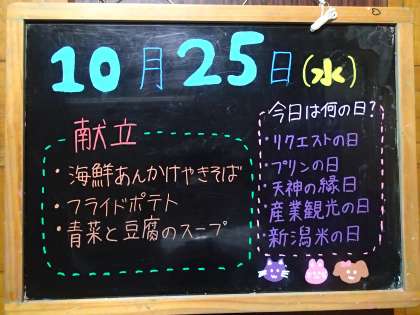 10月25日(水)
献立
・海鮮あんかけやきそば
・フライドポテト
・青菜と豆腐のスープ
今日は何の日?
・リクエストの日
・プリンの日
・天神の縁日
・産業観光の日
・新潟米の日